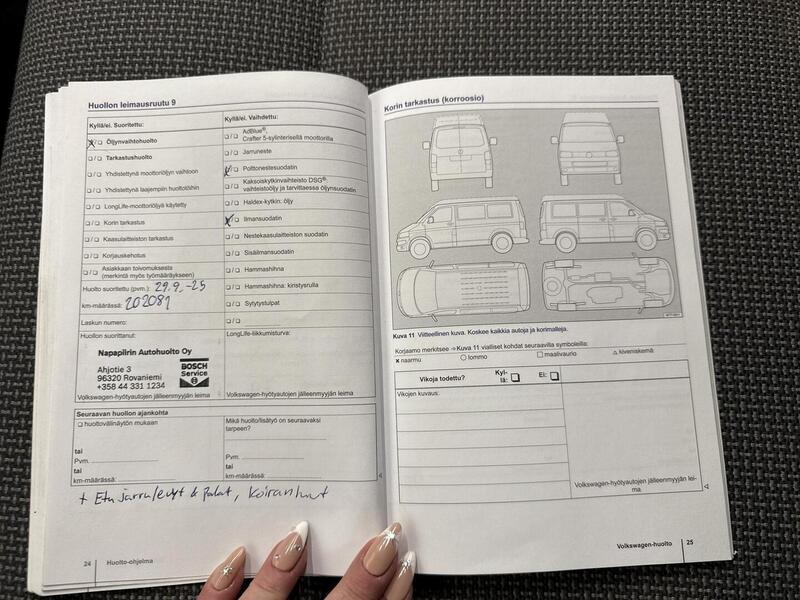 Huollon leimausruutu 9
Kyllä/ei. Suoritettu:
Öljynvaihtohuolto
Tarkastushuolto
Yhdistettynä moottoriöljyn vaihtoon
Yhdistettynä laajempiin huoltotöihin
LongLife-moottoriöljyä käytetty
Korin tarkastus
Kaasulaitteiston tarkastus
Korjauskehotus
Asiakkaan toivomuksesta
(merkintä myös työmääräykseen)
Huolto suoritettu (pvm.): 29.9.-25
km-määrässä: 202081
Laskun numero:
Huollon suorittanut:
Napapiirin Autohuolto Oy
Ahjotie 3
96320 Rovaniemi
+358 44 331 1234
BOSCH
Service
Volkswagen-hyötyautojen jälleenmyyjän leima
Kyllä/ei. Vaihdettu:
AdBlue®,
Crafter 5-sylinterisellä moottorilla
Jarruneste
Polttonestesuodatin
Kaksoiskytkinvaihteisto DSG®:
vaihteistoöljy ja tarvittaessa öljynsuodatin
Haldex-kytkin: öljy
Ilmansuodatin
Nestekaasulaitteiston suodatin
Sisäilmansuodatin
Hammashihna
Hammashihna: kiristysrulla
Sytytystulpat
LongLife-liikkumisturva:
Volkswagen-hyötyautojen jälleenmyyjän leima
Seuraavan huollon ajankohta
huoltovälinäytön mukaan
tai
Pvm.
tai
km-määrässä:
Mikä huolto/lisätyö on seuraavaksi
tarpeen?
Pvm.
tai
km-määrässä:
+ Etu jarrulevyt & palat, koiranluut
24 Huolto-ohjelma
Korin tarkastus (korroosio)
Kuva 11 Viitteellinen kuva. Koskee kaikkia autoja ja korimalleja.
Korjaamo merkitsee ⇒Kuva 11 vialliset kohdat seuraavilla symboleilla:
naarmu lommo maalivaurio kiveniskemä
Vikoja todettu? Kyl-
lä: Ei:
Vikojen kuvaus:
Volkswagen-hyötyautojen jälleenmyyjän lei-
ma
Volkswagen-huolto 25